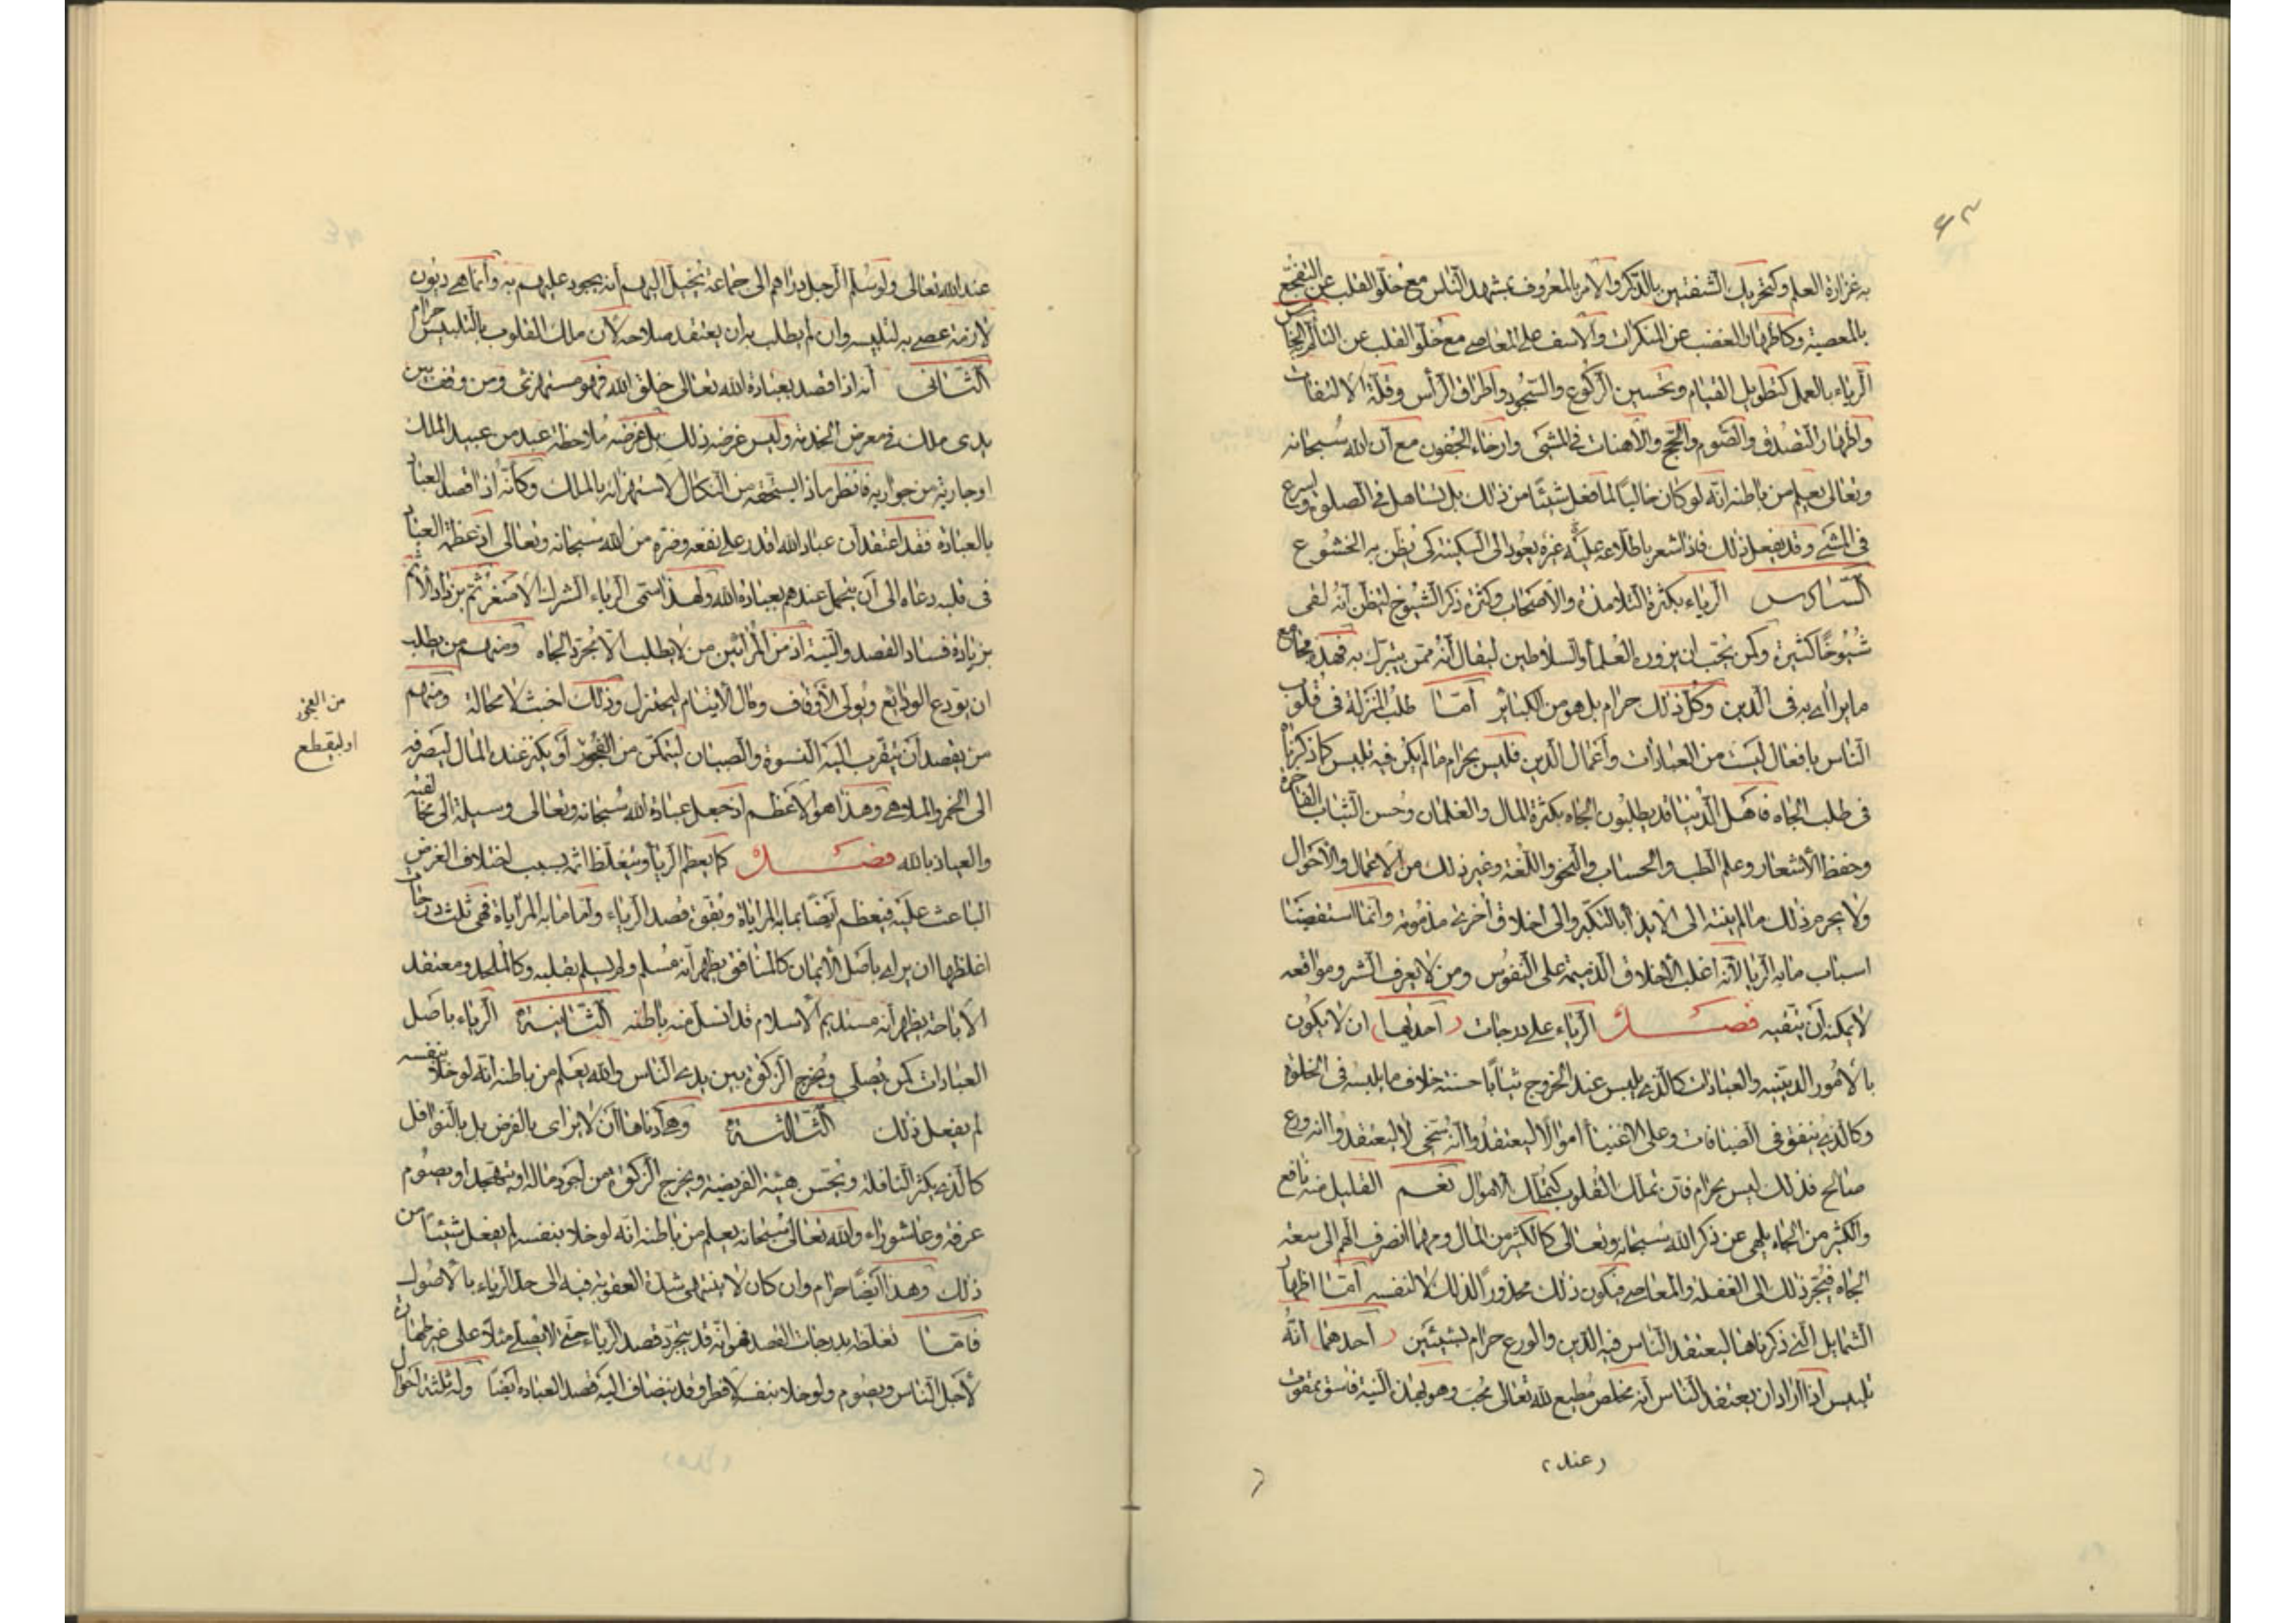 ٩٣
به غزارة العلم وكتحريك الشفتين بالذكر والامر بالمعروف بمشهد الناس مع خلو القلب عن التفجع
بالمعصية وكاظهار الغضب عن المنكرات والاسف على المعاصي مع خلو القلب عن التألم الخامس
الرياء بالعمل كتطويل القيام وتحسين الركوع والسجود واطراف الرأس وقلة الالتفات
واظهار التصدق والصوم والحج والاهنات في المشي وارخاء الجفون مع ان الله سبحانه
وتعالى يعلم من باطنه انه لو كان خاليا لما فعل شيئا من ذلك بل يتساهل في الصلوة ويسرع
في المشي وقد يفعل ذلك فاذا شعر باطلاع غيره عليه يعود الى السكينة كى يظن به الخشوع
السادس الرياء بكثرة التلامذة والاصحاب وكثرة ذكر الشيوخ ليظن انه لقى
شيوخا كثيرة وكن يحب ان يزوره العلماء والسلاطين ليقال انه ممن يتبرك به فهذه مجامع
ما يرائى به في الدين وكل ذلك حرام بل هو من الكبائر امّا طلب المنزلة في قلوب
الناس بافعال ليست من العبادات واعمال الدين فليس بحرام ما لم يكن فيه تلبيس كما ذكرناه
في طلب الجاه فاهل الدنيا قد يطلبون الجاه بكثرة المال والغلمان وحسن الثياب الفاخرة
وحفظ الاشعار وعلم الطب والحساب والنحو واللغة وغير ذلك من الاعمال والاحوال
ولا يحرم ذلك ما لم ينته الى الايذاء بالتكبر والى اخلاق اخرى مذمومة وانما استقصينا
اسباب ما به الريا لانه اغلب الاخلاق الذميمة على النفوس ومن لا يعرف الشر ومواقعه
لا يمكنه ان يتقيه فصل الرياء على درجات (احديها) ان لا يكون
بالامور الدينيه والعبادات كالذي يلبس عند الخروج ثيابا حسنة خلاف ما يلبسه في الخلوة
وكالذي ينفق في الضيافات وعلى الاغنياء اموالا ليعتقدوا انه سخى لا ليعتقدوا انه ورع
صالح فذلك ليس بحرام فان تملك القلوب كتملك الاموال نعم القليل منه نافع
والكثير من الجاه يلهى عن ذكر الله سبحانه وتعالى كالكثير من المال ومهما انصرف الهم الى سعة
الجاه فيتجر ذلك الى الغفلة والمعاصي فيكون ذلك محذورا لذلك لا لنفسه امّا اظهار
الشمايل التي ذكرناها ليعتقد الناس فيه الدين والورع حرام لشيئين (احدهما) انه
تلبيس اذا اراد ان يعتقد الناس انه مخلص مطيع لله تعالى محب وهو بهذه النية فاسق ممقوت
(عند)
عند الله تعالى ولو سلم الرجل دراهم الى جماعة يخيل اليهم انه يجود عليهم به وانما هي ديون
لازمة عصى به لتلبيسه وان لم يطلب به ان يعتقد صلاحه لان ملك القلوب بالتلبيس حرام
الثانى انه اذا قصد بعبادة الله تعالى خلق الله فهو مستهزئ ومن وقف بين
يدى ملك في معرض الخدمة وليس غرضه ذلك بل غرضه ملاحظة عبد من عبيد الملك
او جارية من جواريه فانظر ماذا يستحقه من النكال لاستهزائه بالملك وكانه اذا قصد العباد
بالعبادة فقد اعتقد ان عباد الله اقدر على نفعه وضره من الله سبحانه وتعالى اذ عظمة العباد
في قلبه دعاه الى ان يتجمل عندهم بعبادة الله ولهذا سمى الرياء الشرك الاصغر ثم يزداد الاثم
بزيادة فساد القصد والنية اذ من المرائين من لا يطلب الا مجرد الجاه ومنهم من يطلب
ان يودع الودايع ويولى الاوقاف ومال الايتام ليختزل وذلك اخبث لا محالة ومنهم
من يقصد ان يتقرب اليه النسوة والصبيان ليتمكن من الفجور او يكثر عنده المال ليصرفه
من الفجور
او ليقطع
الى الخمر والملاهي وهذا هو الاعظم اذ جعل عبادة الله سبحانه وتعالى وسيلة الى مخالفته
والعياذ بالله فصل كما يعظم الريا ويتغلظ اثمه بسبب اختلاف الغرض
الباعث عليه فيعظم ايضا بما به المراياة وبقوة قصد الرياء وامّا ما به المراياة فهي ثلث درجات
اغلظها ان يرائى باصل الايمان كالمنافق يظهر انه مسلم ولم يسلم بقلبه وكالملحد ومعتقد
الاباحة يظهر انه مستديم الاسلام قد انسل منه باطنه الثانية الرياء باصل
العبادات كمن يصلى ويخرج الزكوة بين يدى الناس والله يعلم من باطنه انه لو خلا بنفسه
لم يفعل ذلك الثالثة وهي ادناها ان لا يرائى بالفرض بل بالنوافل
كالذي يكثر النافلة ويحسن هيئة الفريضة ويخرج الزكوة من اجود ماله او يتهجد او يصوم
عرفة وعاشوراء والله تعالى سبحانه يعلم من باطنه انه لو خلا بنفسه لم يفعل شيئا من
ذلك وهذا ايضا حرام وان كان لا ينتهى شدة العقوبة فيه الى حد الرياء بالاصول
فامّا تغلظه بدرجات القصد فهو انه قد يتجرد قصد الرياء حتى لا يصلى مثلا على غير طهارة
لاجل الناس ويصوم ولو خلا بنفسه لافطر وقد ينضاف اليه قصد العبادة ايضا وله ثلثة احوال